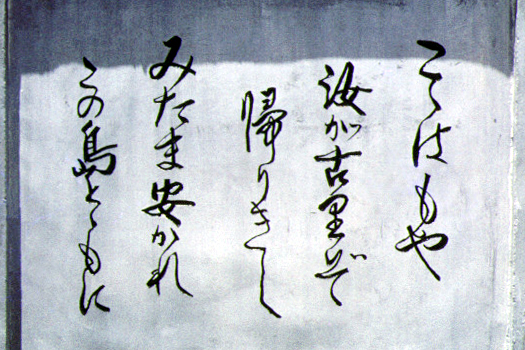 こはもや
汝が古里ぞ
帰りきし
みたま安かれ
この島とゝもに